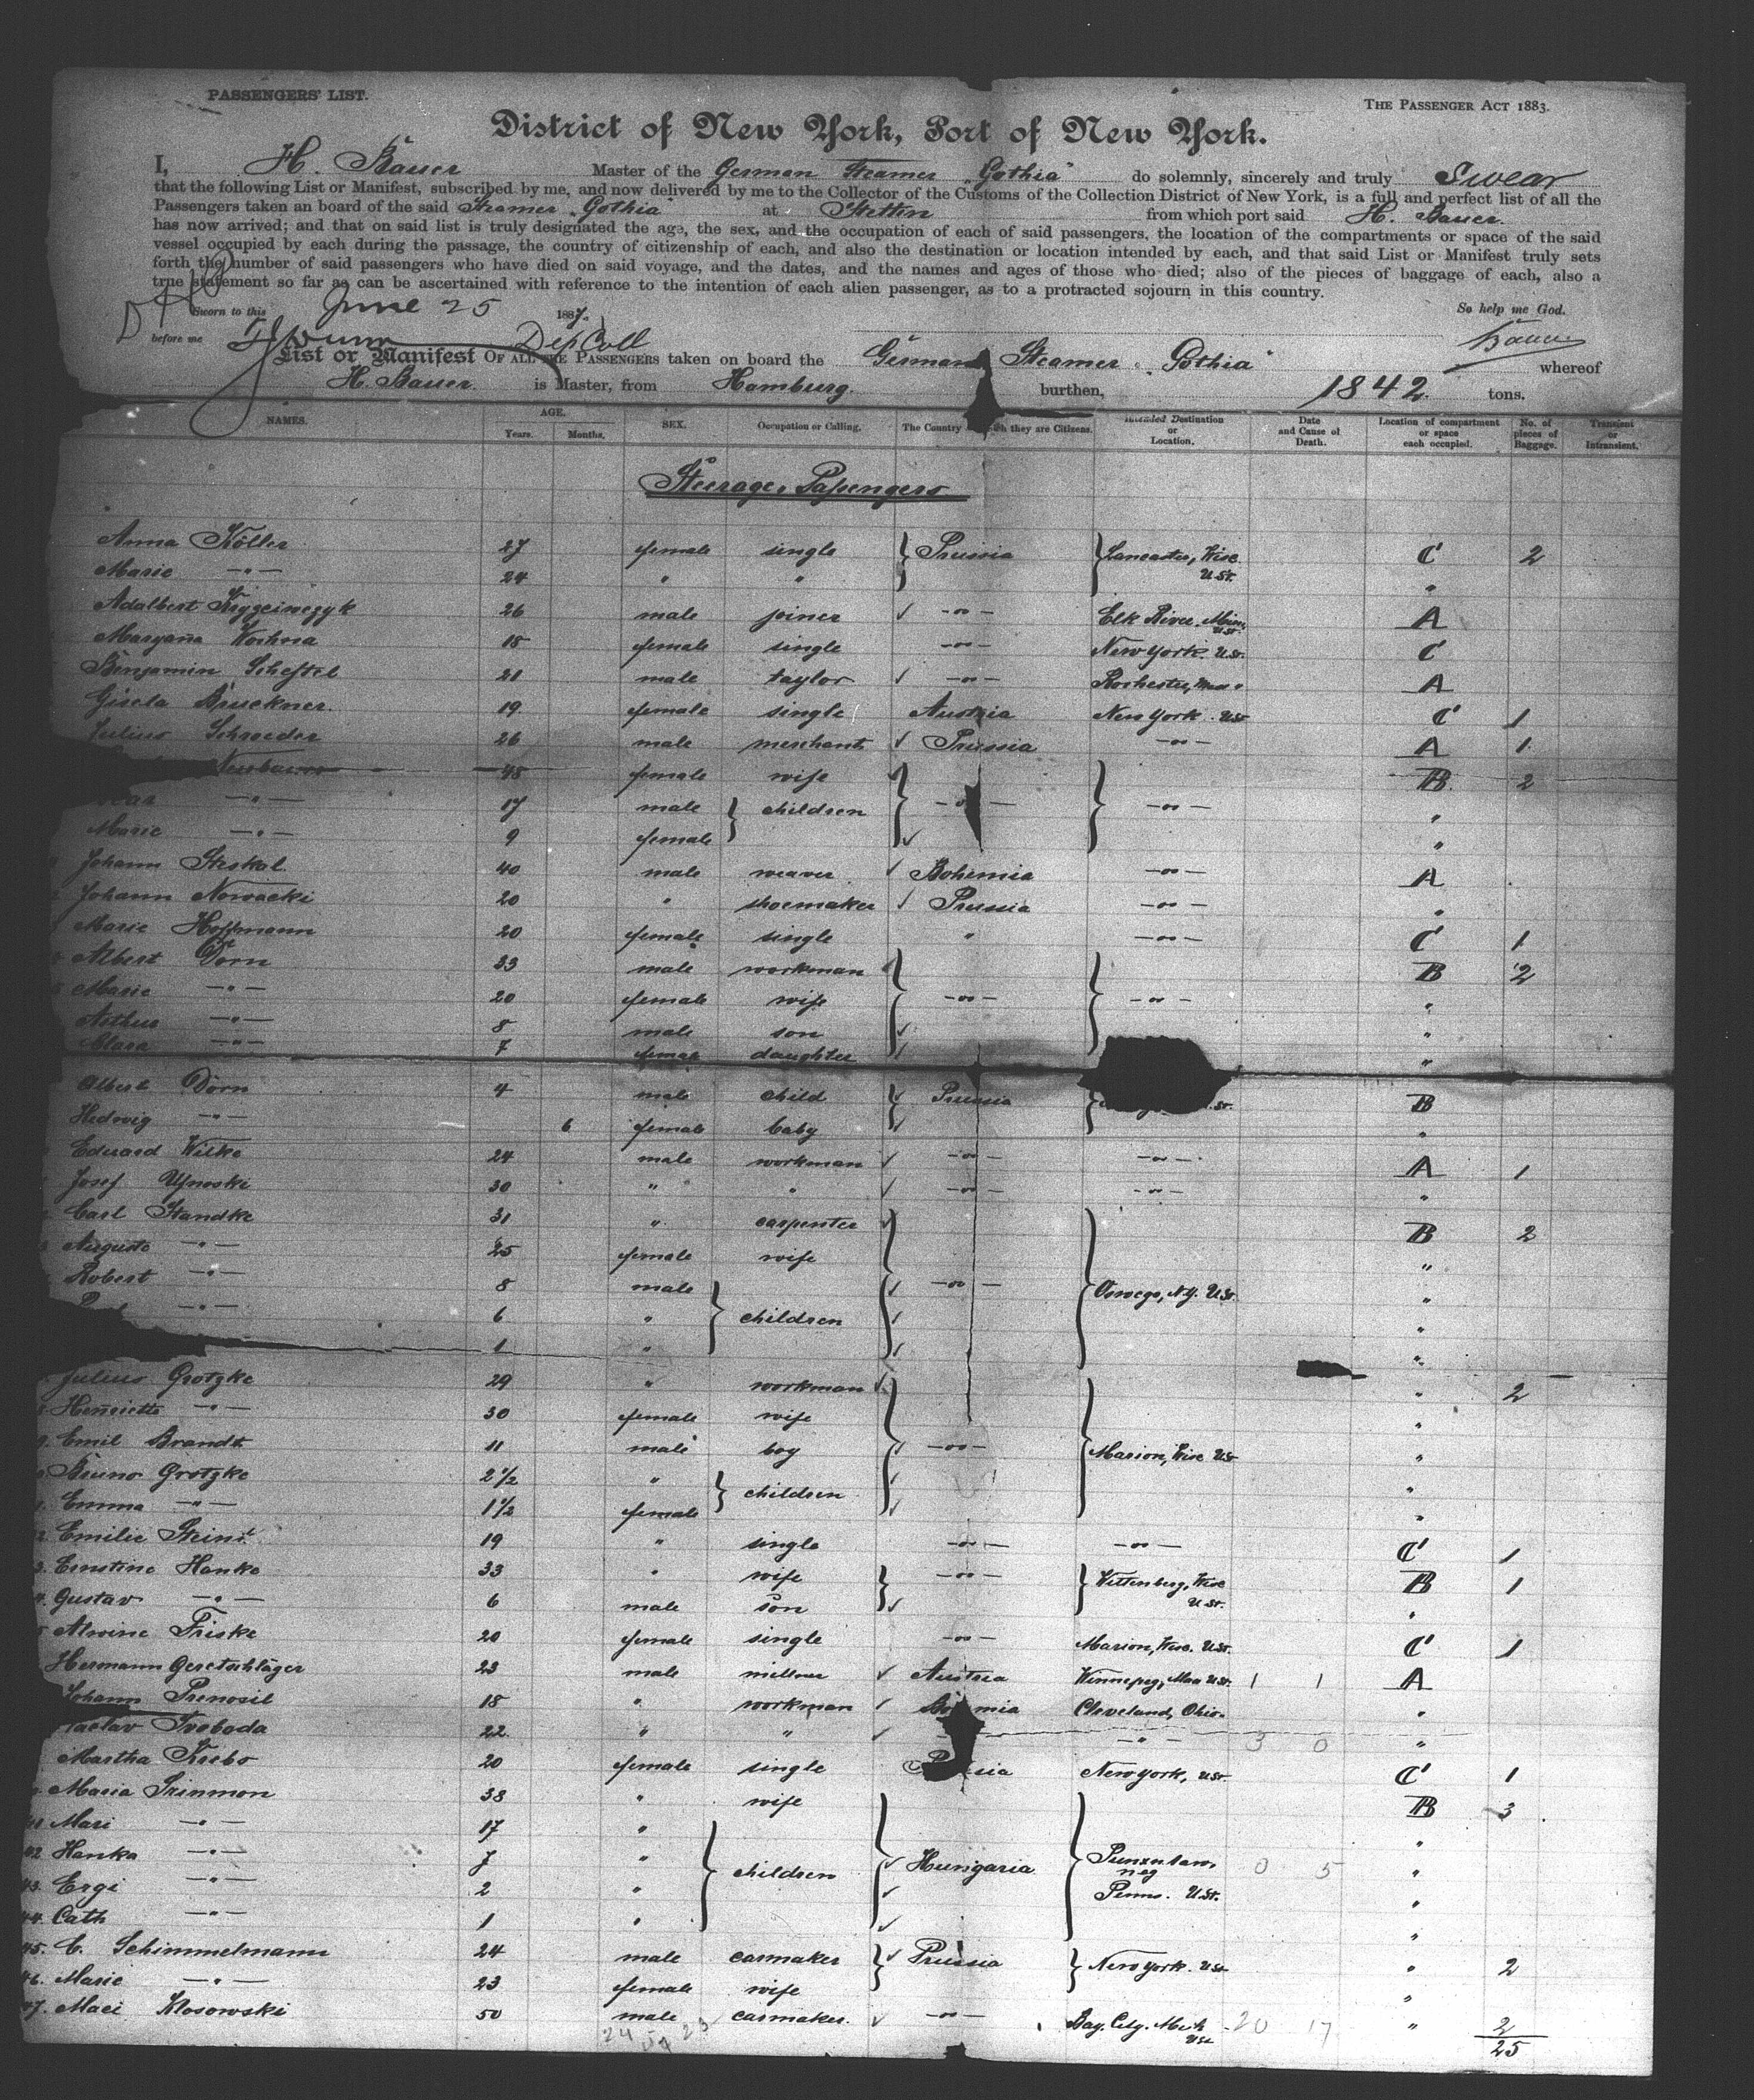 PASSENGERS' LIST.
THE PASSENGER ACT 1883.
District of New York, Port of New York.
I, H. Bauer Master of the German Steamer "Gothia" do solemnly, sincerely and truly Swear
that the following List or Manifest, subscribed by me, and now delivered by me to the Collector of the Customs of the Collection District of New York, is a full and perfect list of all the
Passengers taken an board of the said Steamer "Gothia" at Stettin from which port said H. Bauer.
has now arrived; and that on said list is truly designated the age, the sex, and the occupation of each of said passengers, the location of the compartments or space of the said
vessel occupied by each during the passage, the country of citizenship of each, and also the destination or location intended by each, and that said List or Manifest truly sets
forth the number of said passengers who have died on said voyage, and the dates, and the names and ages of those who died; also of the pieces of baggage of each, also a
true statement so far as can be ascertained with reference to the intention of each alien passenger, as to a protracted sojourn in this country.
Sworn to this June 25 1887. So help me God.
before me Dep Coll Bauer
List or Manifest OF ALL THE PASSENGERS taken on board the German Steamer "Gothia" whereof
H. Bauer. is Master, from Hamburg. burthen, 1842. tons.
NAMES. AGE. Years. Months. SEX. Occupation or Calling. The Country they are Citizens. Intended Destination or Location. Date and Cause of Death. Location of compartment or space each occupied. No. of pieces of Baggage. Transient or Intransient.
Steerage-Passengers
Anna Köller 27 female single Prussia Lancaster, Wisc. U.St. C 2
Marie -"- 24 " " "
Adalbert 26 male joiner -"- Elk River, Minn. U.St. A
Maryana 18 female single -"- New York. U.St. C
Benjamin Scheftel 21 male taylor -"- Rochester, A
Gisela Bruckner. 19 female single Austria New York. U.St. C 1
Julius Schroeder 26 male merchant Prussia -"- A 1
45 female wife -"- -"- B. 2
-"- 17 male children "
Marie -"- 9 female "
Johann Steskal. 40 male weaver Bohemia -"- A
Johann Nowacki 20 " shoemaker Prussia -"- "
Marie Hoffmann 20 female single " -"- C 1
Albert Dorn 33 male workman B 2
Marie -"- 20 female wife -"- -"- "
Arthur -"- 8 male son "
Clara -"- 7 female daughter "
Albert Dorn 4 male child Prussia B
Hedwig -"- 6 female baby "
Eduard Wilke 24 male workman -"- -"- A 1
Josef 30 " " -"- -"- "
Carl Standke 31 " carpenter B 2
Auguste -"- 25 female wife "
Robert -"- 8 male children -"- Oswego, N.Y. U.St. "
-"- 6 " "
1 " "
Julius Grotzke 29 " workman " 2
Henriette -"- 30 female wife "
Emil Brandt 11 male boy -"- Marion, Wisc. U.St. "
Bruno Grotzke 2 1/2 " children "
Emma -"- 1 1/2 female "
Emilie 19 " single -"- -"- C 1
Ernstine Hanke 33 " wife -"- Wittenberg, Wisc. U.St. B 1
Gustav -"- 6 male son "
Alwine Friske 20 female single -"- Marion, Wisc. U.St. C 1
Hermann Geretschläger 23 male Austria Winnepeg, Man U.St. 1 1 A
Johann Prenosil 18 " workman Cleveland, Ohio. "
Svoboda 22 " " -"- 3 0 "
Martha Krebs 20 female single New York, U.St. C 1
Maria Trinmon 38 " wife B 3
41 Mari -"- 17 " "
42 Hanka -"- 7 " children Hungaria Punxutawneg 0 5 "
43. Ergi -"- 2 " Penns. U.St. "
44. Cath -"- 1 " "
45. C. Schimmelmann 24 male carmaker Prussia New York. U.St. " 2
46. Marie -"- 23 female wife "
47. Maci Klosowski 50 male carmaker. -"- Bay City. Mich U.St. 20 17 " 2
24 23
25